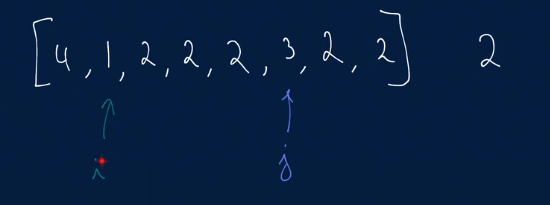 [4, 1, 2, 2, 2, 3, 2, 2] 2
i j